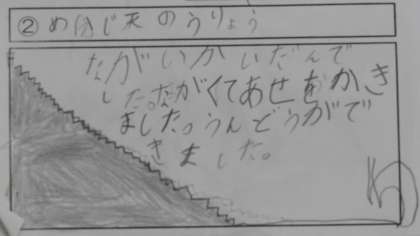 ② めはじ天のうりょう
ながいかいだんで
した。ながくてあせをかき
ました。うんどうがで
きました。